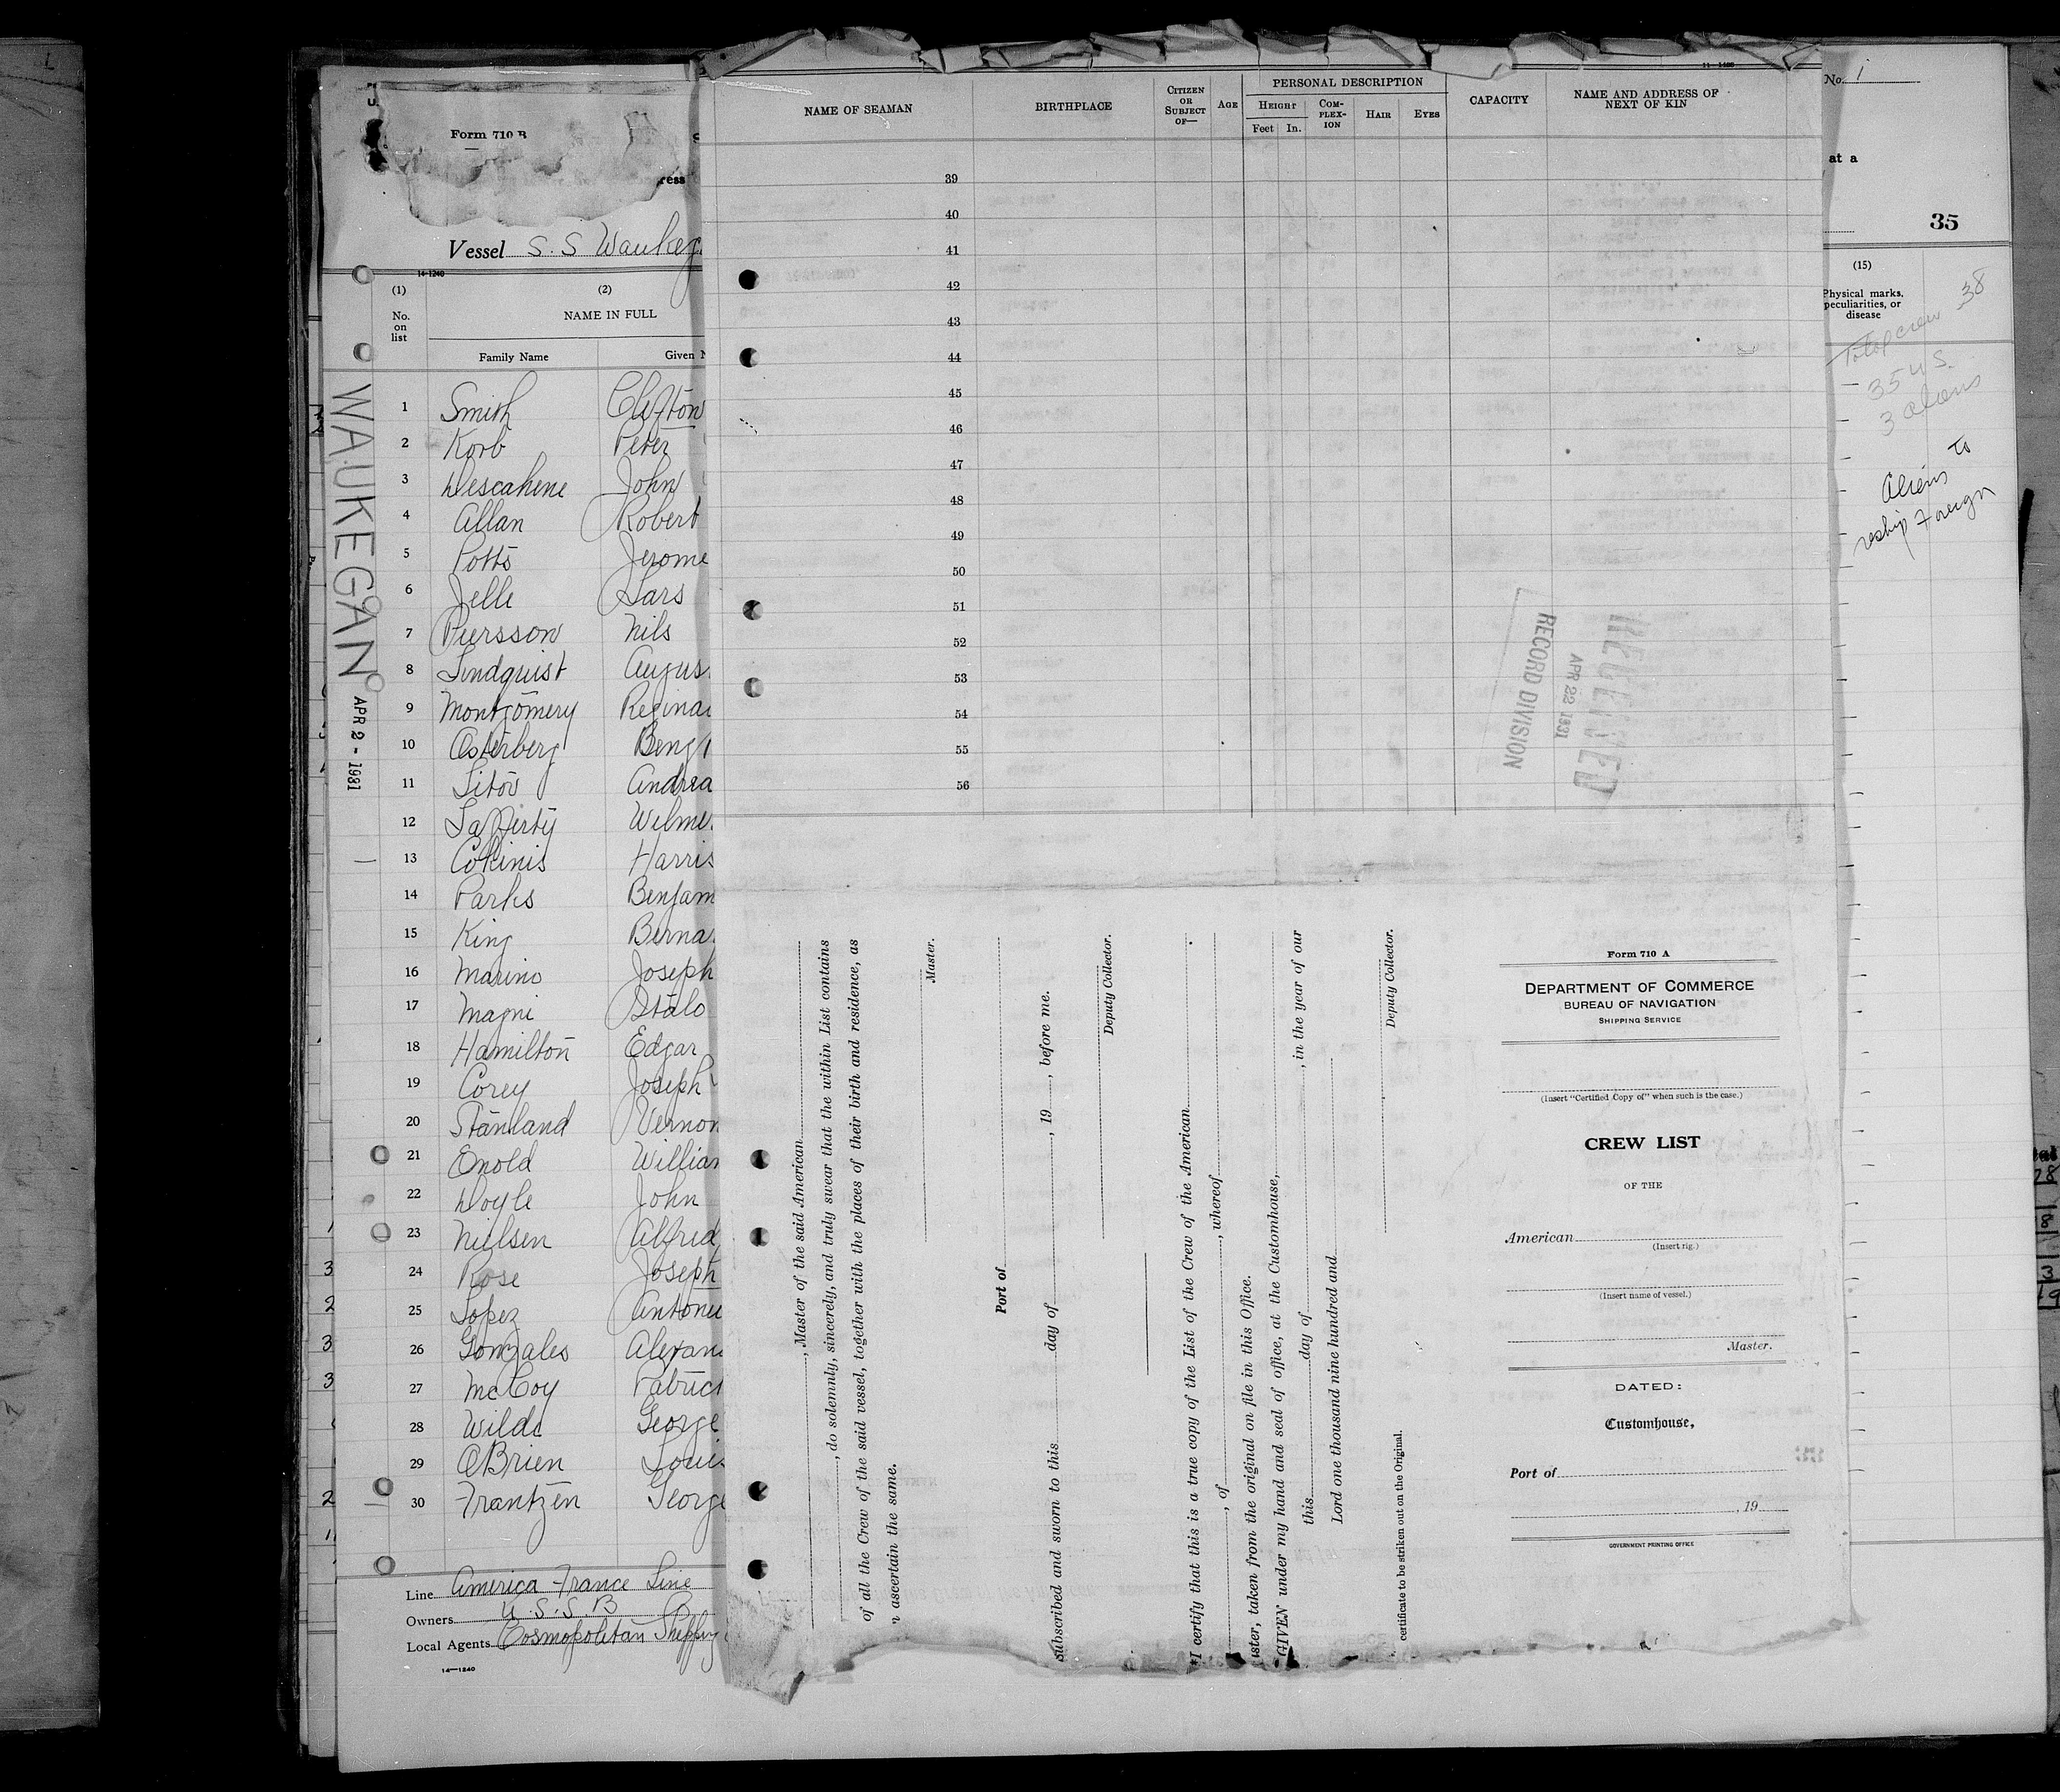 Form 710 B
ress
Vessel S. S Waukeg
14-1240
(1)
(2)
No.
on
list
NAME IN FULL
Family Name
Given N
1 Smith Clifton
2 Korb Peter
3 Descahene John
4 Allan Robert
5 Potts Jerome
6 Jelle Lars
7 Piersson Nils
8 Lindquist Augus
9 Montgomery Reginal
10 Osterberg Beng
11 Titov Andrea
12 Lafferty Wilme
13 Cokinis Harris
14 Parks Benjam
15 King Berna
16 Marino Joseph
17 Magni Italo
18 Hamilton Edgar
19 Corey Joseph
20 Stanland Vernon
21 Enold William
22 Doyle John
23 Nielsen Alfred
24 Rose Joseph
25 Lopez Antoni
26 Gonzales Alexan
27 McCoy Patrick
28 Wilde George
29 OBrien Louis
30 Frantzen George
Line America France Line
Owners U.S.S.B
Local Agents Cosmopolitan Shipping
14-1240
WAUKEGAN
APR 2 - 1931
NAME OF SEAMAN
BIRTHPLACE
CITIZEN
OR
SUBJECT
OF—
AGE
PERSONAL DESCRIPTION
HEIGHT
Feet In.
COM-
PLEX-
ION
HAIR
EYES
CAPACITY
NAME AND ADDRESS OF
NEXT OF KIN
39
40
41
42
43
44
45
46
47
48
49
50
51
52
53
54
55
56
RECEIVED
APR 22 1931
RECORD DIVISION
, Master of the said American
, do solemnly, sincerely, and truly swear that the within List contains
of all the Crew of the said vessel, together with the places of their birth and residence, as
n ascertain the same.
Master.
Port of
Subscribed and sworn to this day of , 19 , before me.
Deputy Collector.
*I certify that this is a true copy of the List of the Crew of the American
, of , whereof
ster, taken from the original on file in this Office.
GIVEN under my hand and seal of office, at the Customhouse,
this day of , in the year of our
Lord one thousand nine hundred and
Deputy Collector.
certificate to be striken out on the Original.
Form 710 A
DEPARTMENT OF COMMERCE
BUREAU OF NAVIGATION
SHIPPING SERVICE
(Insert "Certified Copy of" when such is the case.)
CREW LIST
OF THE
American
(Insert rig.)
(Insert name of vessel.)
Master.
DATED:
Customhouse,
Port of
, 19
GOVERNMENT PRINTING OFFICE
No. 1
at a
35
(15)
Physical marks,
peculiarities, or
disease
Total crew 38
35 U S.
3 aliens
Aliens to
reship Foreign